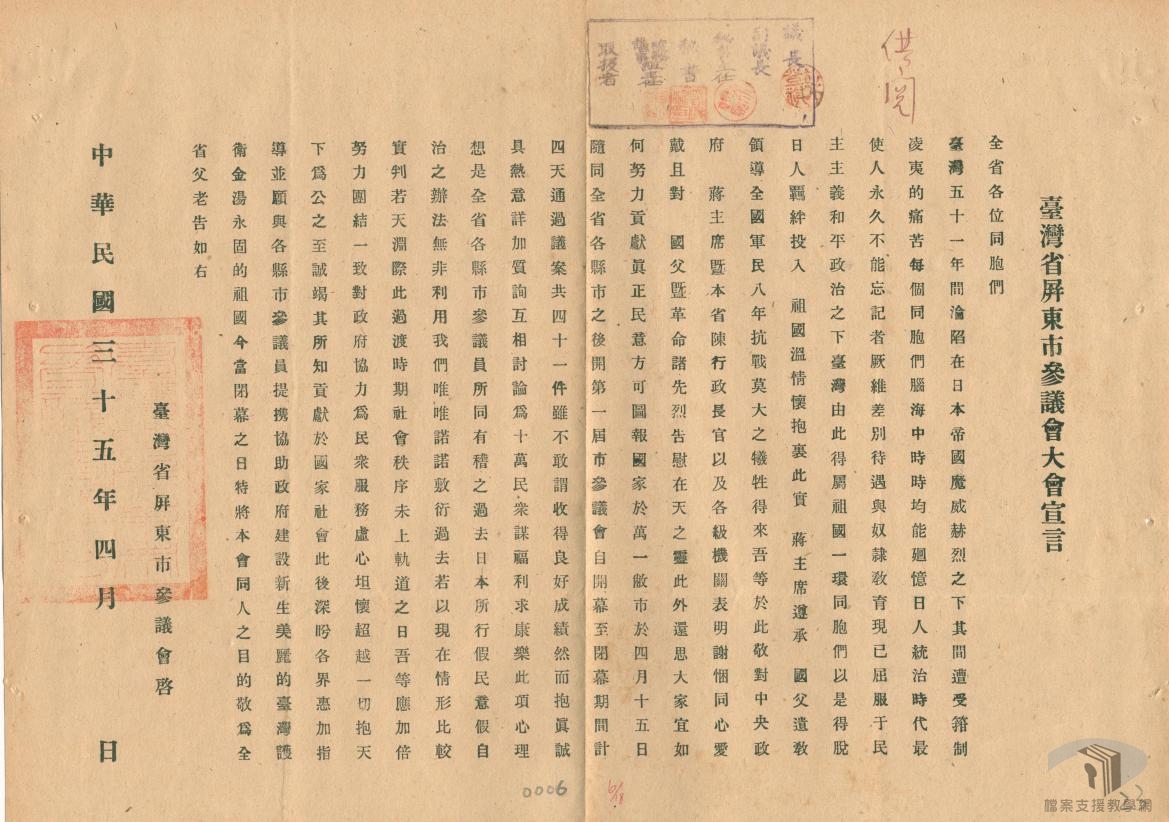 供閱
議長
副議長
秘書主任
秘書
取扱者
臺灣省屏東市參議會大會宣言
全省各位同胞們
臺灣五十一年間淪陷在日本帝國魔威赫烈之下其間遭受箝制
凌夷的痛苦每個同胞們腦海中時時均能廻憶日人統治時代最
使人永久不能忘記者厥維差別待遇與奴隷敎育現已屈服于民
主主義和平政治之下臺灣由此得屬祖國一環同胞們以是得脫
日人羈絆投入 祖國溫情懷抱裏此實 蔣主席遵承 國父遺敎
領導全國軍民八年抗戰莫大之犧牲得來吾等於此敬對中央政
府 蔣主席暨本省陳行政長官以及各級機關表明謝悃同心愛
戴且對 國父暨革命諸先烈告慰在天之靈此外還思大家宜如
何努力貢獻眞正民意方可圖報國家於萬一敝市於四月十五日
隨同全省各縣市之後開第一屆市參議會自開幕至閉幕期間計
四天通過議案共四十一件雖不敢謂收得良好成績然而抱眞誠
具熱意詳加質詢互相討論爲十萬民衆謀福利求康樂此項心理
想是全省各縣市參議員所同有稽之過去日本所行假民意假自
治之辦法無非利用我們唯唯諾諾敷衍過去若以現在情形比較
實判若天淵際此過渡時期社會秩序未上軌道之日吾等應加倍
努力團結一致對政府協力爲民衆服務虛心坦懷超越一切抱天
下爲公之至誠竭其所知貢獻於國家社會此後深盼各界惠加指
導並願與各縣市參議員提携協助政府建設新生美麗的臺灣護
衛金湯永固的祖國今當閉幕之日特將本會同人之目的敬爲全
省父老告如右
臺灣省屏東市參議會啓
中華民國三十五年四月 日
0006
檔案支援教學網